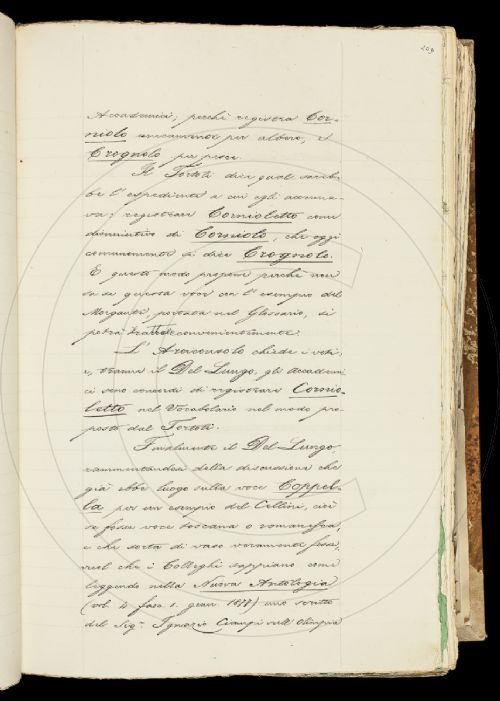 Accademia, perchè registra Cor-
niolo unicamente per albero, e
Crognolo per pesce.
Il Tortoli dice qual sareb-
be l'espediente a cui egli
va; registrare Cornioletto come
diminutivo di Corniolo, che oggi
comunemente si dice Crognolo.
E questo modo propone perchè non
sa se questa voce con l'esempio del
Morgante, portata nel Glossario, si
potrà trattar convenientemente.
L'Arciconsolo chiede i voti,
e, tranne il Del-Lungo, gli Accademi-
ci sono concordi di registrare Cornio-
letto nel Vocabolario nel modo pro-
posto dal Tortoli.
Finalmente il Del-Lungo,
rammentandosi della discussione che
già ebbe luogo sulla voce Coppel-
la per un esempio del Cellini, cioè
se fosse voce toscana o romanesca,
e che sorta di vaso veramente fosse,
vuol che i Colleghi sappiano come
leggendo nella Nuova Antologia
(vol. 4 fasc. 1. genn. 1877) uno scritto
del Sig.r Ignazio Ciampi sull'Olimpia